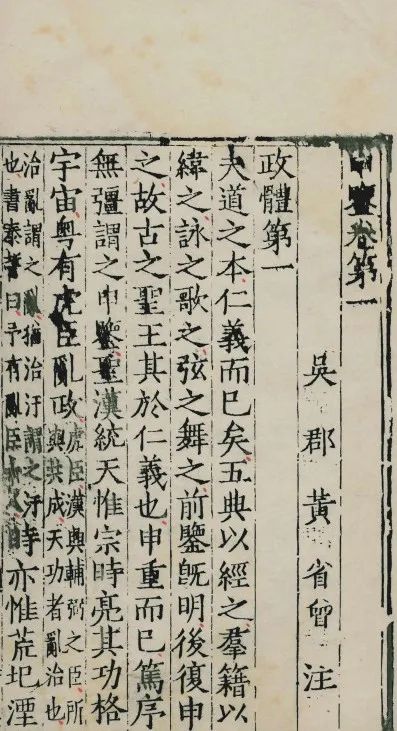 申鑒卷第一
吳郡黃省曾注
政體第一
夫道之本仁義而已矣五典以經之羣籍以
緯之詠之歌之弦之舞之前鑒旣明後復申
之故古之聖王其於仁義也申重而已篤序
無彊謂之申鑒聖漢統天惟宗時亮其功格
宇宙粤有虎臣亂政
虎臣漢興輔弼之臣所
與共成天功者亂治也
治亂謂之亂猶治汙謂之汙
也書泰誓曰予有亂臣十人
時亦惟荒圯湮